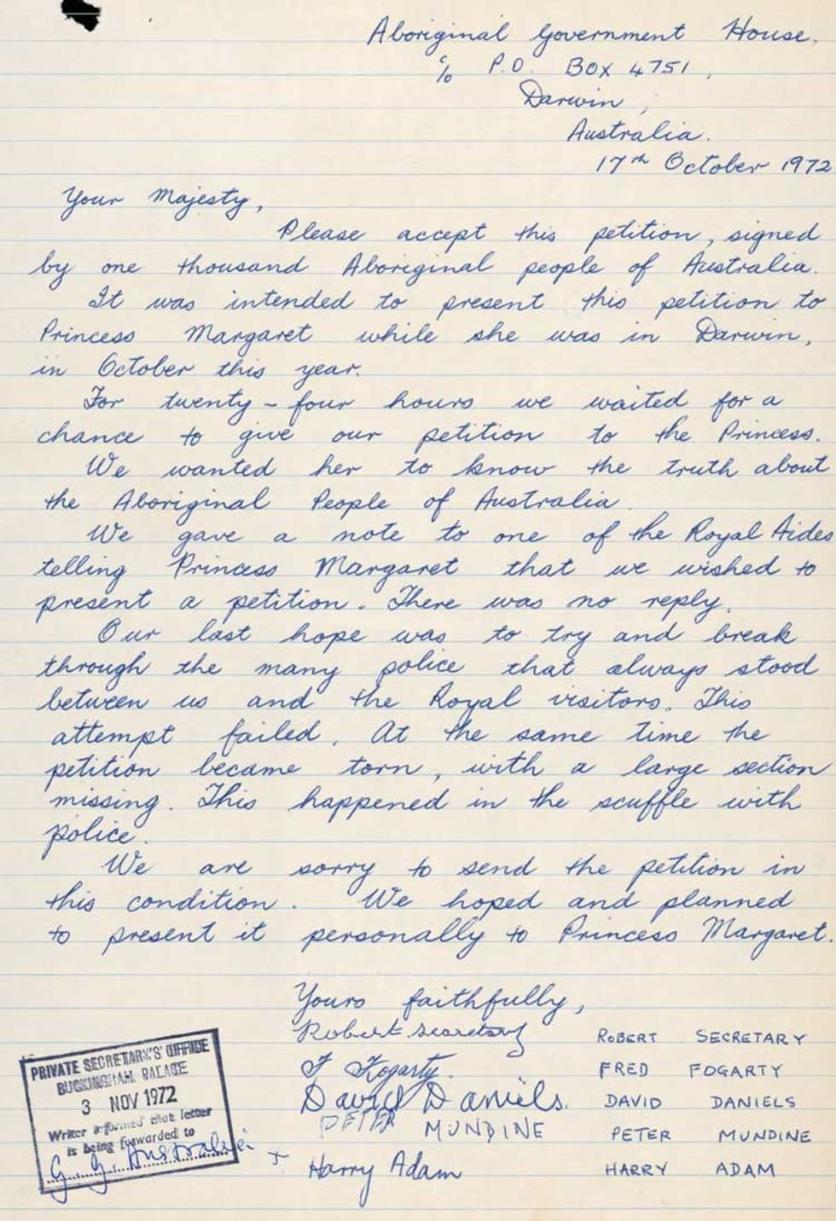 Aboriginal Government House,
c/o P.O. Box 4751,
Darwin,
Australia.
17th October 1972
Your Majesty,
Please accept this petition, signed
by one thousand Aboriginal people of Australia.
It was intended to present this petition to
Princess Margaret while she was in Darwin,
in October this year.
For twenty-four hours we waited for a
chance to give our petition to the Princess.
We wanted her to know the truth about
the Aboriginal People of Australia.
We gave a note to one of the Royal Aides
telling Princess Margaret that we wished to
present a petition. There was no reply.
Our last hope was to try and break
through the many police that always stood
between us and the Royal visitors. This
attempt failed. At the same time the
petition became torn, with a large section
missing. This happened in the scuffle with
police.
We are sorry to send the petition in
this condition. We hoped and planned
to present it personally to Princess Margaret.
Yours faithfully,
Robert Secretary ROBERT SECRETARY
F Fogarty. FRED FOGARTY
David Daniels. DAVID DANIELS
PETER MUNDINE PETER MUNDINE
Harry Adam HARRY ADAM
PRIVATE SECRETARY'S OFFICE
BUCKINGHAM PALACE
3 NOV 1972
Writer informed that letter
is being forwarded to
G. G. Australia